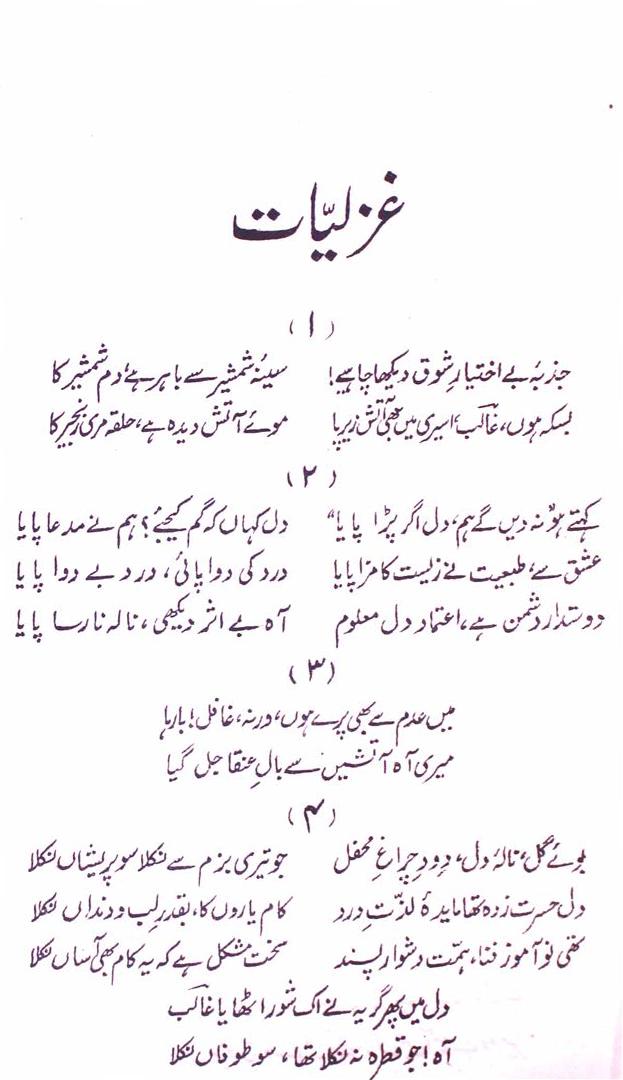 غزلیّات
(۱)
جذبۂ بے اختیارِ شوق دیکھا چاہیے! سینۂ شمشیر سے باہر ہے، دم شمشیر کا
بسکہ ہوں، غالبؔ، اسیری میں بھی آتش زیرِ پا موئے آتش دیدہ ہے، حلقہ مری زنجیر کا
(۲)
کہتے ہو "نہ دیں گے ہم، دل اگر پڑا پایا" دل کہاں کہ گم کیجئے؟ ہم نے مدعا پایا
عشق سے، طبیعت نے زیست کا مزا پایا درد کی دوا پائی، درد بے دوا پایا
دوستدارِ دشمن ہے، اعتمادِ دل معلوم آہ بے اثر دیکھی، نالہ نارسا پایا
(۳)
میں عدم سے بھی پرے ہوں، ورنہ، غافل! بارہا
میری آہِ آتشیں سے بالِ عنقا جل گیا
(۴)
بوئے گل، نالۂ دل، دودِ چراغِ محفل جو تیری بزم سے نکلا سو پریشاں نکلا
دل حسرت زدہ تھا مایدۂ لذّتِ درد کام یاروں کا، بقدرِ لب و دنداں نکلا
تھی نو آموزِ فنا، ہمّت دشوار پسند سخت مشکل ہے کہ یہ کام بھی آساں نکلا
دل میں پھر گریہ نے اک شور اٹھایا غالبؔ
آہ! جو قطرہ نہ نکلا تھا، سو طوفاں نکلا